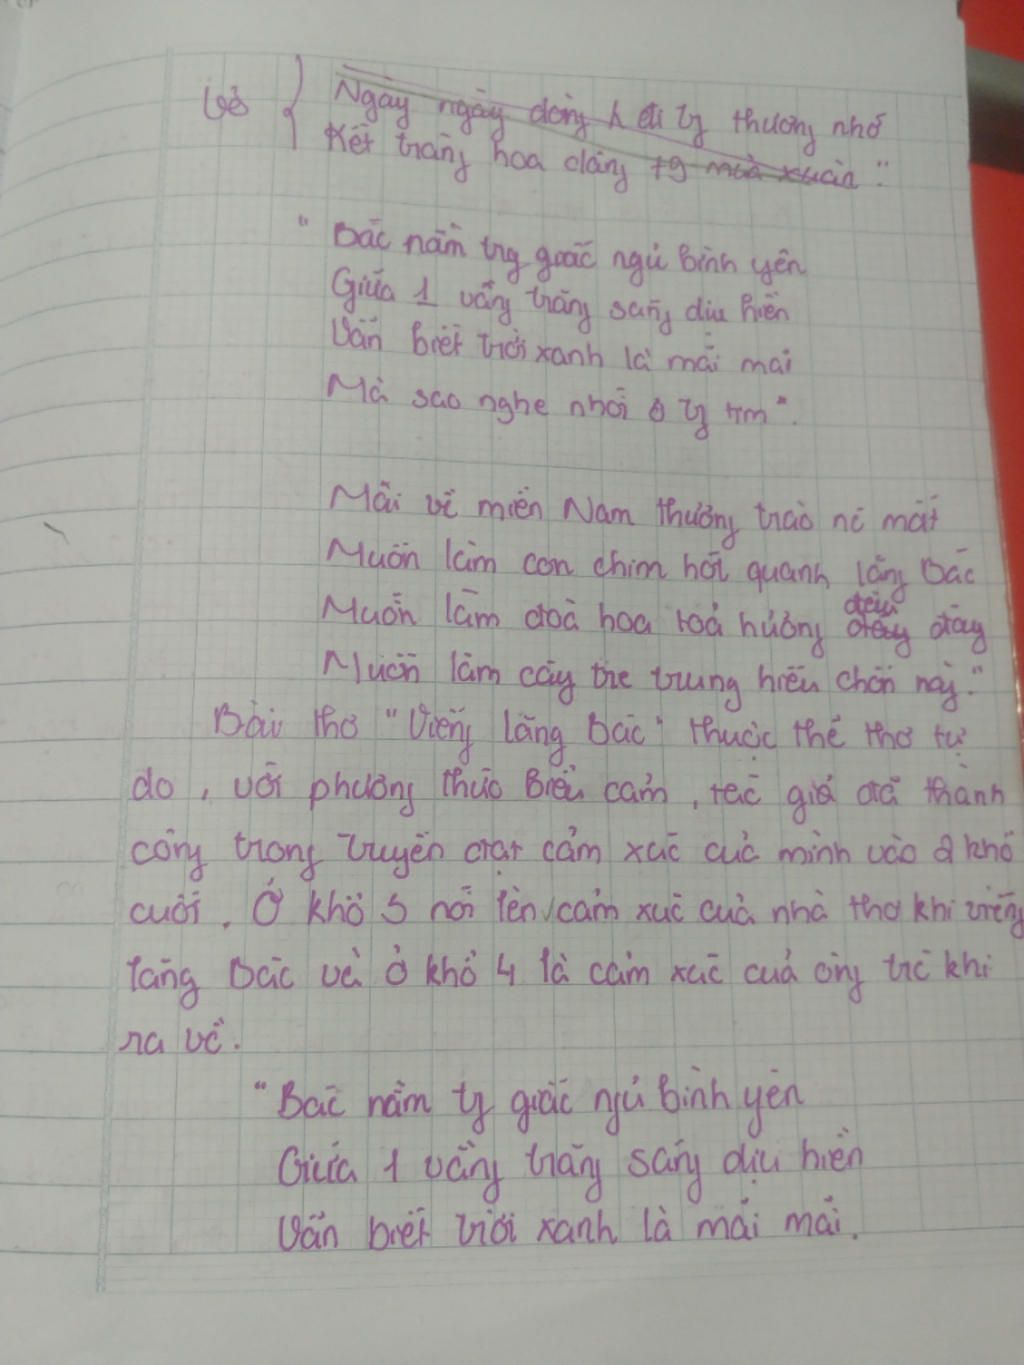 Vở { Ngày ngày dòng h đi tg thương nhớ
Kết tràng hoa dâng 79 mùa xuân."
"Bác nằm trg giấc ngủ bình yên
Giữa 1 vầng trăng sáng dịu hiền
Vẫn biết trời xanh là mãi mãi
Mà sao nghe nhói ở tg tim".
Mai về miền Nam thương trào nc mắt
Muốn làm con chim hót quanh lăng Bác
Muốn làm đoá hoa toả hương đâu đây
Muốn làm cây tre trung hiếu chốn này."
Bài thơ "Viếng lăng Bác" thuộc thể thơ tự
do, với phương thức biểu cảm, tác giả đã thành
công trong truyền đạt cảm xúc của mình vào 2 khổ
cuối. Ở khổ 3 nói lên cảm xúc của nhà thơ khi viếng
lăng Bác và ở khổ 4 là cảm xúc của ông trc khi
ra về.
"Bác nằm tg giấc ngủ bình yên
Giữa 1 vầng trăng sáng dịu hiền
Vẫn biết trời xanh là mãi mãi.